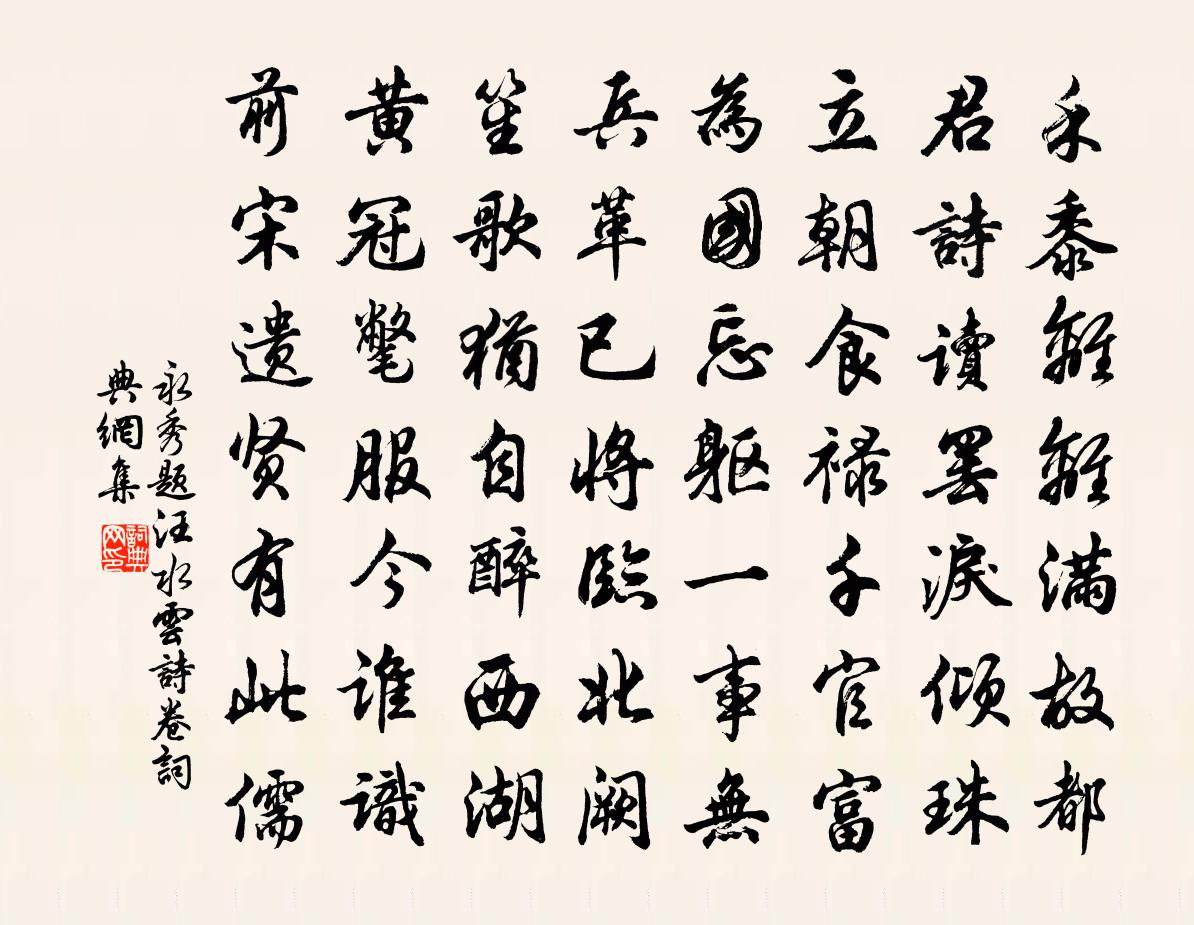 禾黍離離滿故都
君詩讀罷淚傾珠
立朝食祿千官富
為國忘軀一事無
兵革已將臨北闕
笙歌猶自醉西湖
黃冠氅服今誰識
前宋遺賢有此儒
永秀題汪水雲詩卷詞
典網集
詞典
网印